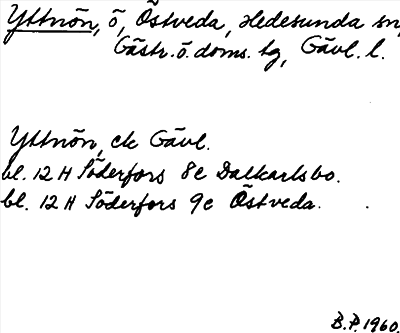 Yttnön, ö, Östveda, Hedesunda sn,
Gästr. ö. doms. tg, Gävl. l.
Yttnön, ek Gävl.
bl. 12 H Söderfors 8e Dalkarlsbo.
bl. 12 H Söderfors 9e Östveda.
B.P. 1960.